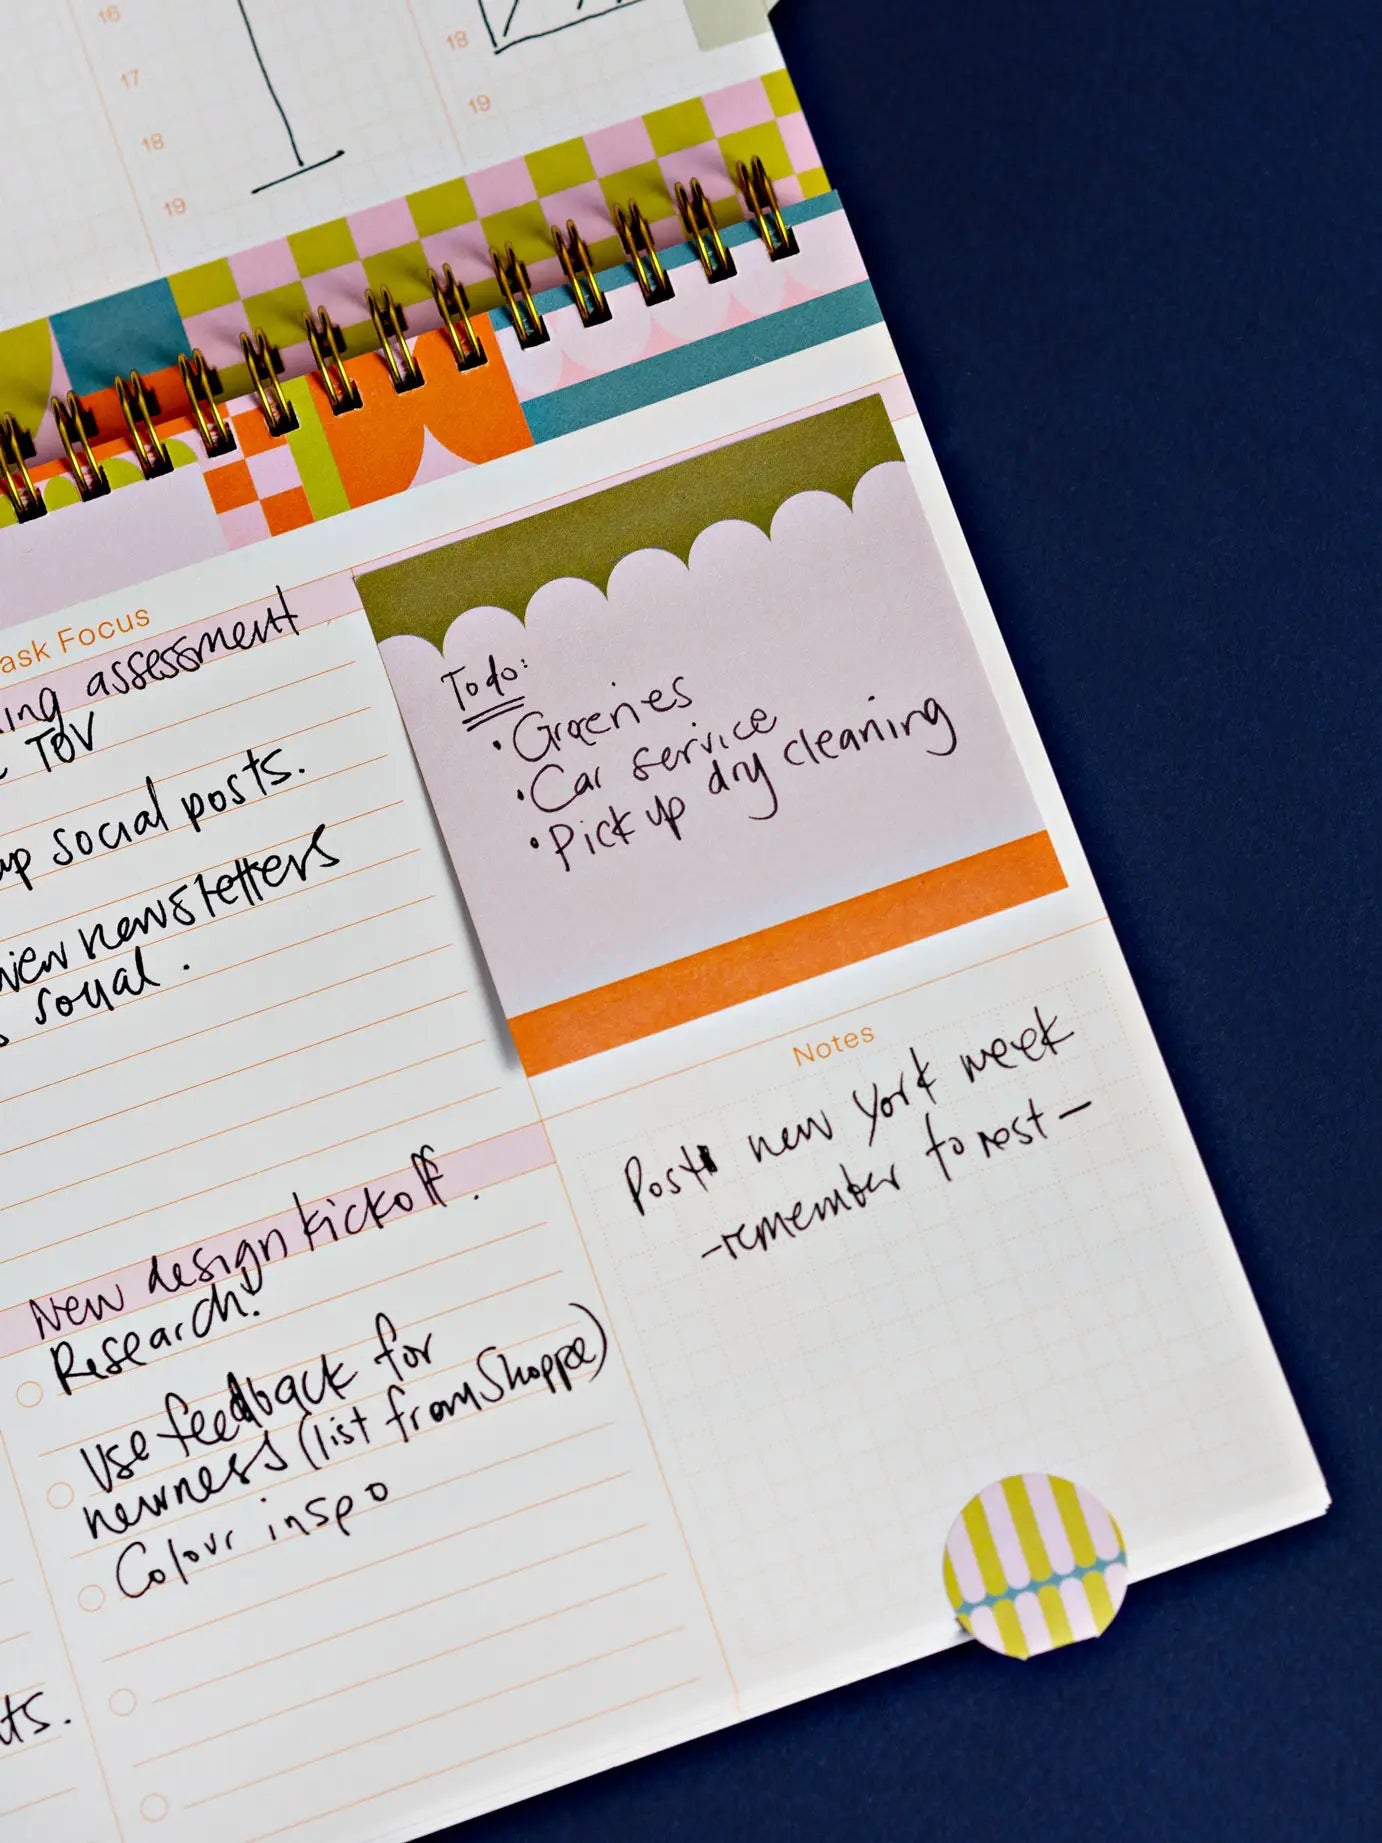 16
17
18
19
18
19
ask Focus
ing assessment
TOV
up social posts.
view newsletters
social.
Todo:
• Groceries
• Car service
• Pick up dry cleaning
Notes
Post new york week
- remember to rest -
New design kickoff.
Research!
Use feedback for
newness (list from Shoppe)
Colour inspo
ts.